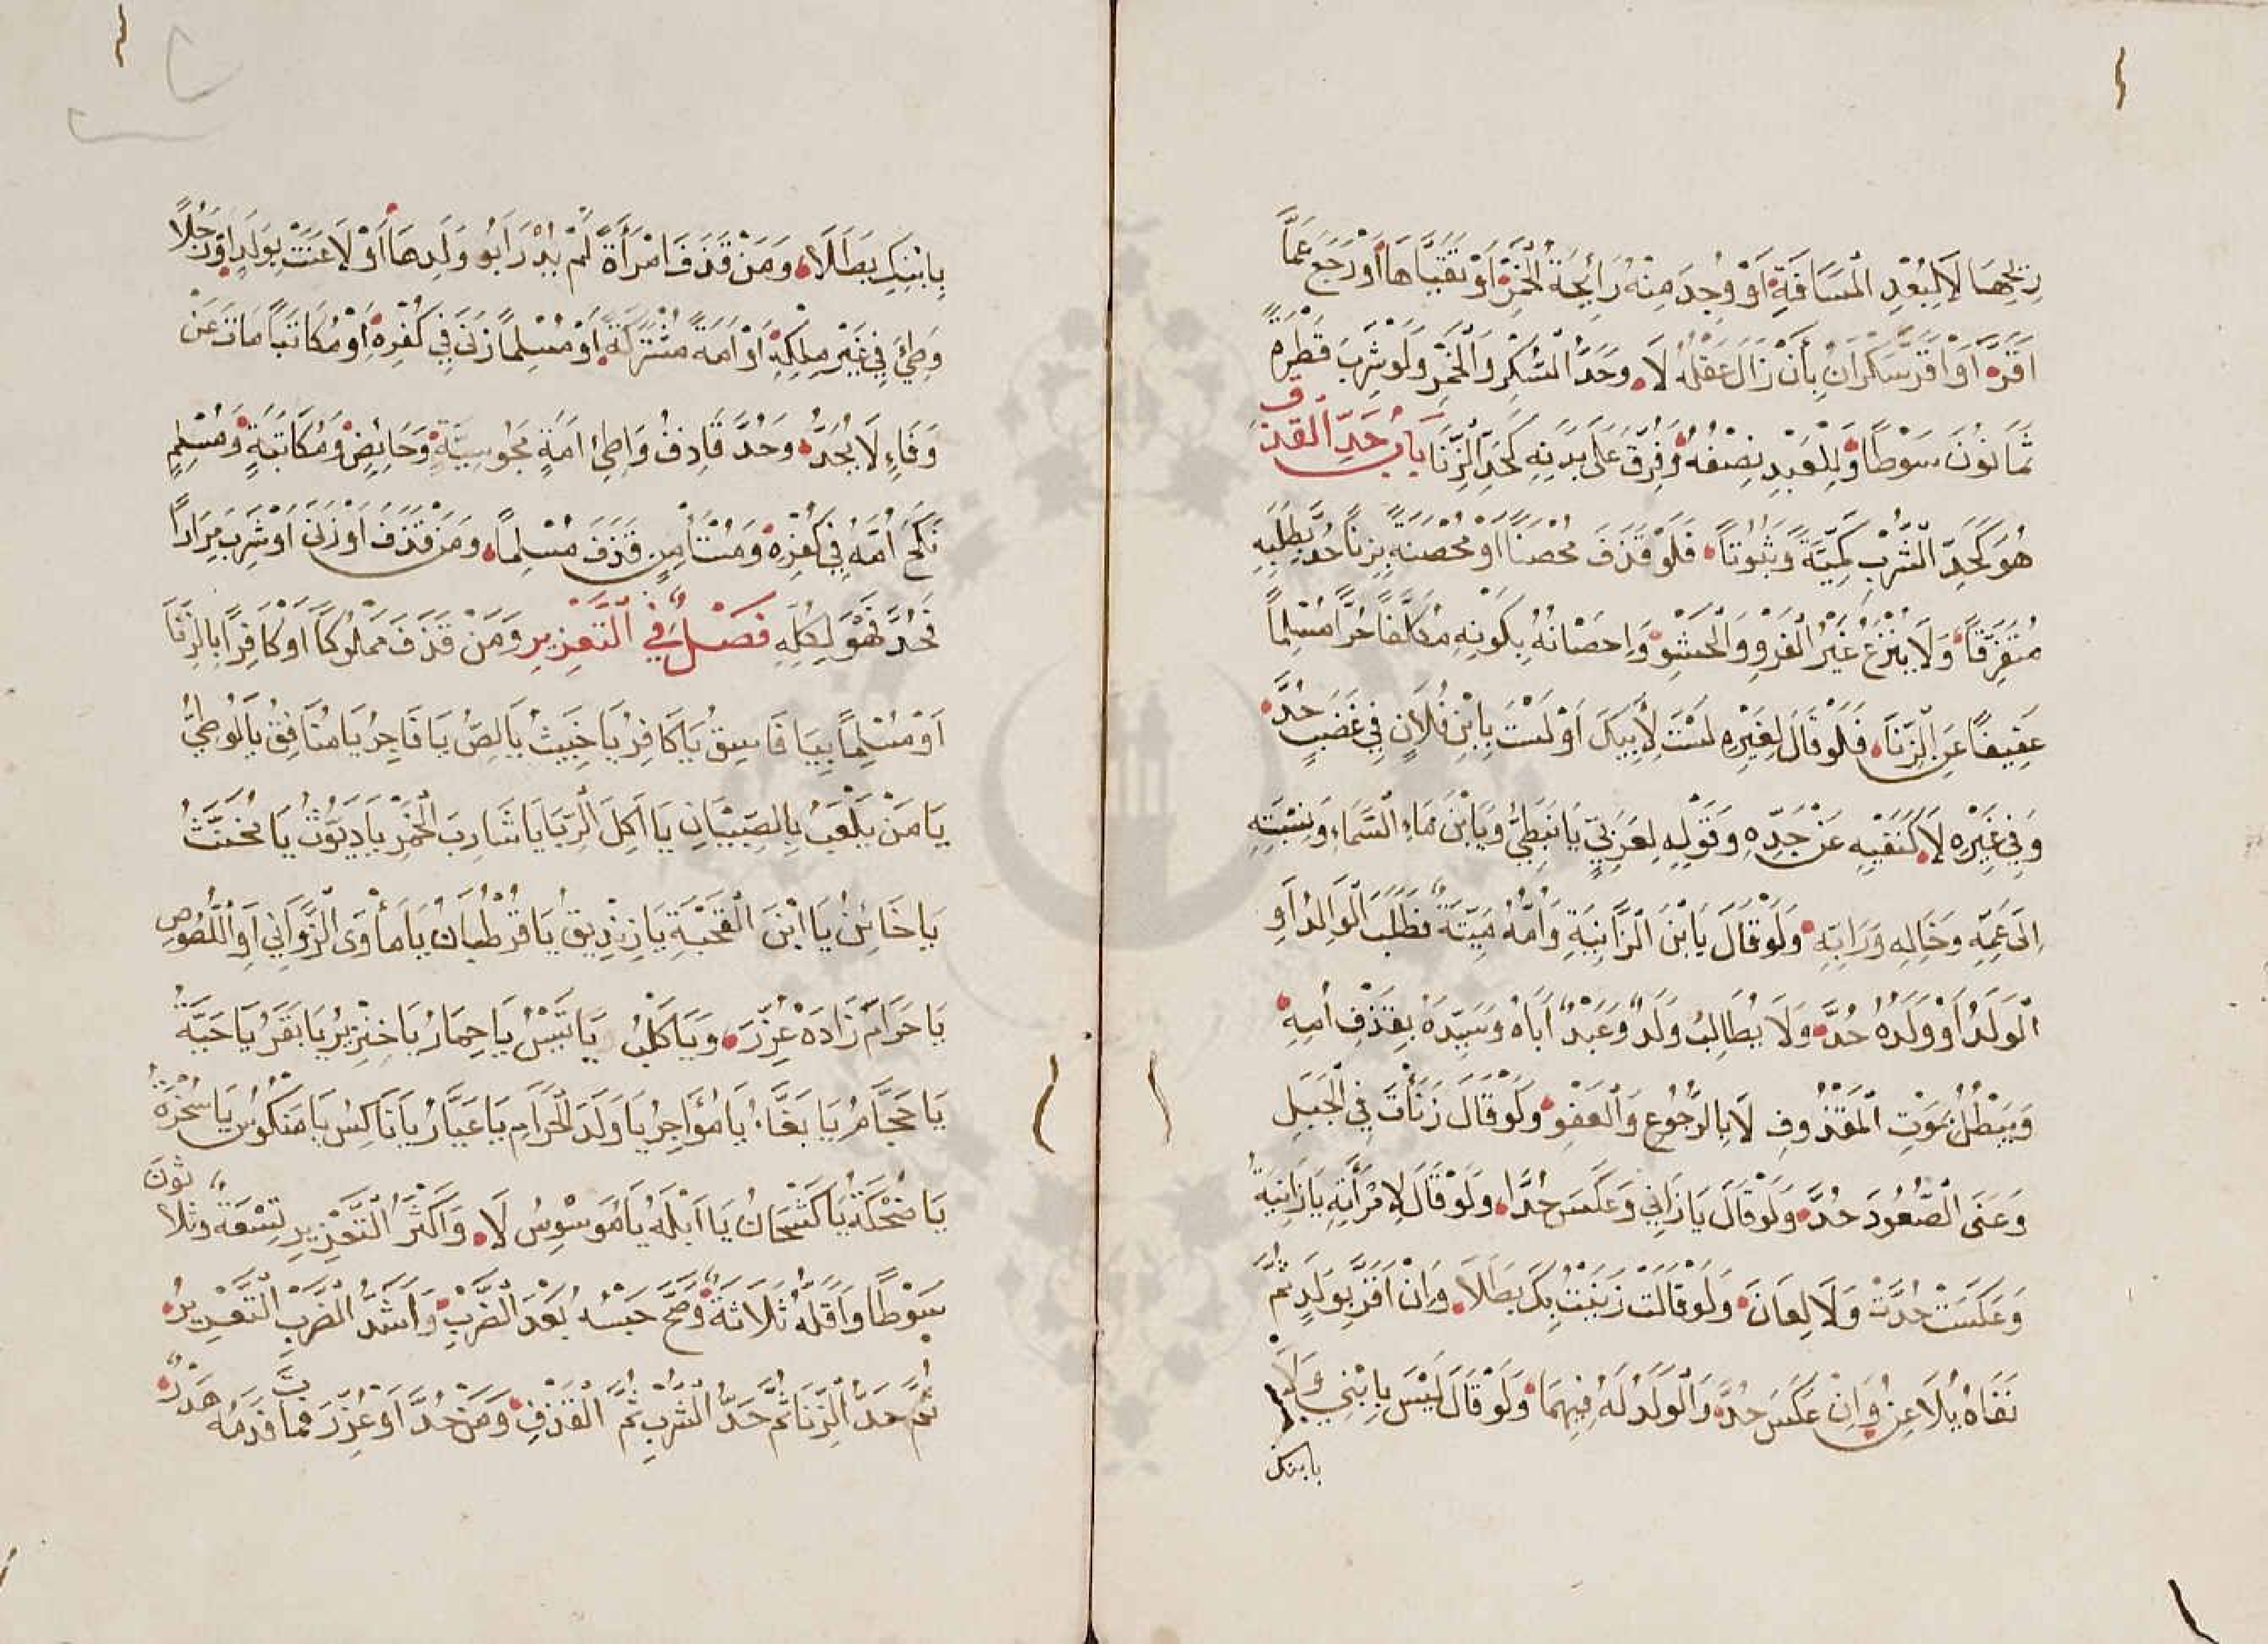 رِيْحِهَا لَا لِبُعْدِ الْمَسَافَةِ اَوْ وُجِدَ مِنْهُ رَائِحَةُ الْخَمْرِ اَوْ تَقَيَّأَهَا اَوْ رَجَعَ عَمَّا
اَقَرَّ اَوْ اَقَرَّ سَكْرَانٌ بِأَنْ زَالَ عَقْلُهُ لَا وَحَدُّ السُّكْرِ وَالْخَمْرِ وَلَوْ شَرِبَ قَطْرَةً
ثَمَانُونَ سَوْطًا وَلِلْعَبْدِ نِصْفُهُ وَفُرِّقَ عَلَى بَدَنِهِ كَحَدِّ الزِّنَا بَابُ حَدِّ الْقَذْفِ
هُوَ كَحَدِّ الشُّرْبِ كَمِّيَّةً وَثُبُوتًا فَلَوْ قَذَفَ مُحْصَنًا اَوْ مُحْصَنَةً بِزِنًا حُدَّ بِطَلَبِهِ
مُتَفَرِّقًا وَلَا يُنْزَعُ غَيْرُ الْفَرْوِ وَالْحَشْوِ وَاِحْصَانُهُ بِكَوْنِهِ مُكَلَّفًا حُرًّا مُسْلِمًا
عَفِيفًا عَنِ الزِّنَا فَلَوْ قَالَ لِغَيْرِهِ لَسْتَ لِأَبِيكَ اَوْ لَسْتَ بِابْنِ فُلَانٍ فِي غَضَبٍ حُدَّ
وَفِي غَيْرِهِ لَا كَنَفْيِهِ عَنْ جَدِّهِ وَقَوْلِهِ لِعَرَبِيٍّ يَا نَبَطِيُّ وَيَا ابْنَ مَاءِ السَّمَاءِ وَنِسْبَتِهِ
اِلَى عَمِّهِ وَخَالِهِ وَرَابِّهِ وَلَوْ قَالَ يَا ابْنَ الزَّانِيَةِ وَاُمُّهُ مَيِّتَةٌ فَطَلَبَ الْوَالِدُ اَوِ
الْوَلَدُ اَوْ وَلَدُهُ حُدَّ وَلَا يُطَالِبُ وَلَدٌ وَعَبْدٌ اَبَاهُ وَسَيِّدَهُ بِقَذْفِ اُمِّهِ
وَيَبْطُلُ بِمَوْتِ الْمَقْذُوفِ لَا بِالرُّجُوعِ وَالْعَفْوِ وَلَوْ قَالَ زَنَأْتَ فِي الْجَبَلِ
وَعَنَى الصُّعُودَ حُدَّ وَلَوْ قَالَ يَا زَانِي وَعَكَسَ حُدَّا وَلَوْ قَالَ لِامْرَأَتِهِ يَا زَانِيَةُ
وَعَكَسَتْ حُدَّتْ وَلَا لِعَانَ وَلَوْ قَالَتْ زَنَيْتُ بِكَ بَطَلَا وَاِنْ اَقَرَّ بِوَلَدٍ ثُمَّ
نَفَاهُ يُلَاعِنُ وَاِنْ عَكَسَ حُدَّ وَالْوَلَدُ لَهُ فِيهِمَا وَلَوْ قَالَ لَيْسَ بِابْنِي وَلَا
بابنك
بِابْنِكِ بَطَلَا وَمَنْ قَذَفَ امْرَأَةً لَمْ يُدْرَ اَبُو وَلَدِهَا اَوْ لَاعَنَتْ بِوَلَدٍ اَوْ رَجُلًا
وَطِئَ فِي غَيْرِ مِلْكِهِ اَوْ اَمَةً مُشْتَرَكَةً اَوْ مُسْلِمًا زَنَى فِي كُفْرِهِ اَوْ مُكَاتَبًا مَاتَ عَنْ
وَفَاءٍ لَا يُحَدُّ وَحُدَّ قَاذِفُ وَاطِئِ اَمَةٍ مَجُوسِيَّةٍ وَحَائِضٍ وَمُكَاتَبَةٍ وَمُسْلِمٍ
نَكَحَ اُمَّهُ فِي كُفْرِهِ وَمُسْتَأْمِنٍ قَذَفَ مُسْلِمًا وَمَنْ قَذَفَ اَوْ زَنَى اَوْ شَرِبَ مِرَارًا
فَحُدَّ فَهُوَ لِكُلِّهِ فَصْلٌ فِي التَّعْزِيرِ وَمَنْ قَذَفَ مَمْلُوكًا اَوْ كَافِرًا بِالزِّنَا
اَوْ مُسْلِمًا بِيَا فَاسِقُ يَا كَافِرُ يَا خَبِيثُ يَا لِصُّ يَا فَاجِرُ يَا مُنَافِقُ يَا لُوطِيُّ
يَا مَنْ يَلْعَبُ بِالصِّبْيَانِ يَا اٰكِلَ الرِّبَا يَا شَارِبَ الْخَمْرِ يَا دَيُّوثُ يَا مُخَنَّثُ
يَا خَائِنُ يَا ابْنَ الْقَحْبَةِ يَا زِنْدِيقُ يَا قُرْطُبَانُ يَا مَأْوَى الزَّوَانِي اَوِ اللُّصُوصِ
يَا حَرَامْ زَادَهْ عُزِّرَ وَيَا كَلْبُ يَا تَيْسُ يَا حِمَارُ يَا خِنْزِيرُ يَا بَقَرُ يَا حَيَّةُ
يَا حَجَّامُ يَا بَغَّاءُ يَا مُؤَاجِرُ يَا وَلَدَ الْحَرَامِ يَا عَيَّارُ يَا نَاكِسُ يَا مَنْكُوسُ يَا سُخْرَةُ
يَا ضُحْكَةُ يَا كَشْحَانُ يَا اَبْلَهُ يَا مُوَسْوِسُ لَا وَاَكْثَرُ التَّعْزِيرِ تِسْعَةٌ وَثَلَاثُونَ
سَوْطًا وَاَقَلُّهُ ثَلَاثَةٌ وَصَحَّ حَبْسُهُ بَعْدَ الضَّرْبِ وَاَشَدُّ الضَّرْبِ التَّعْزِيرُ
ثُمَّ حَدُّ الزِّنَا ثُمَّ حَدُّ الشُّرْبِ ثُمَّ الْقَذْفِ وَمَنْ حُدَّ اَوْ عُزِّرَ فَمَاتَ فَدَمُهُ هَدَرٌ